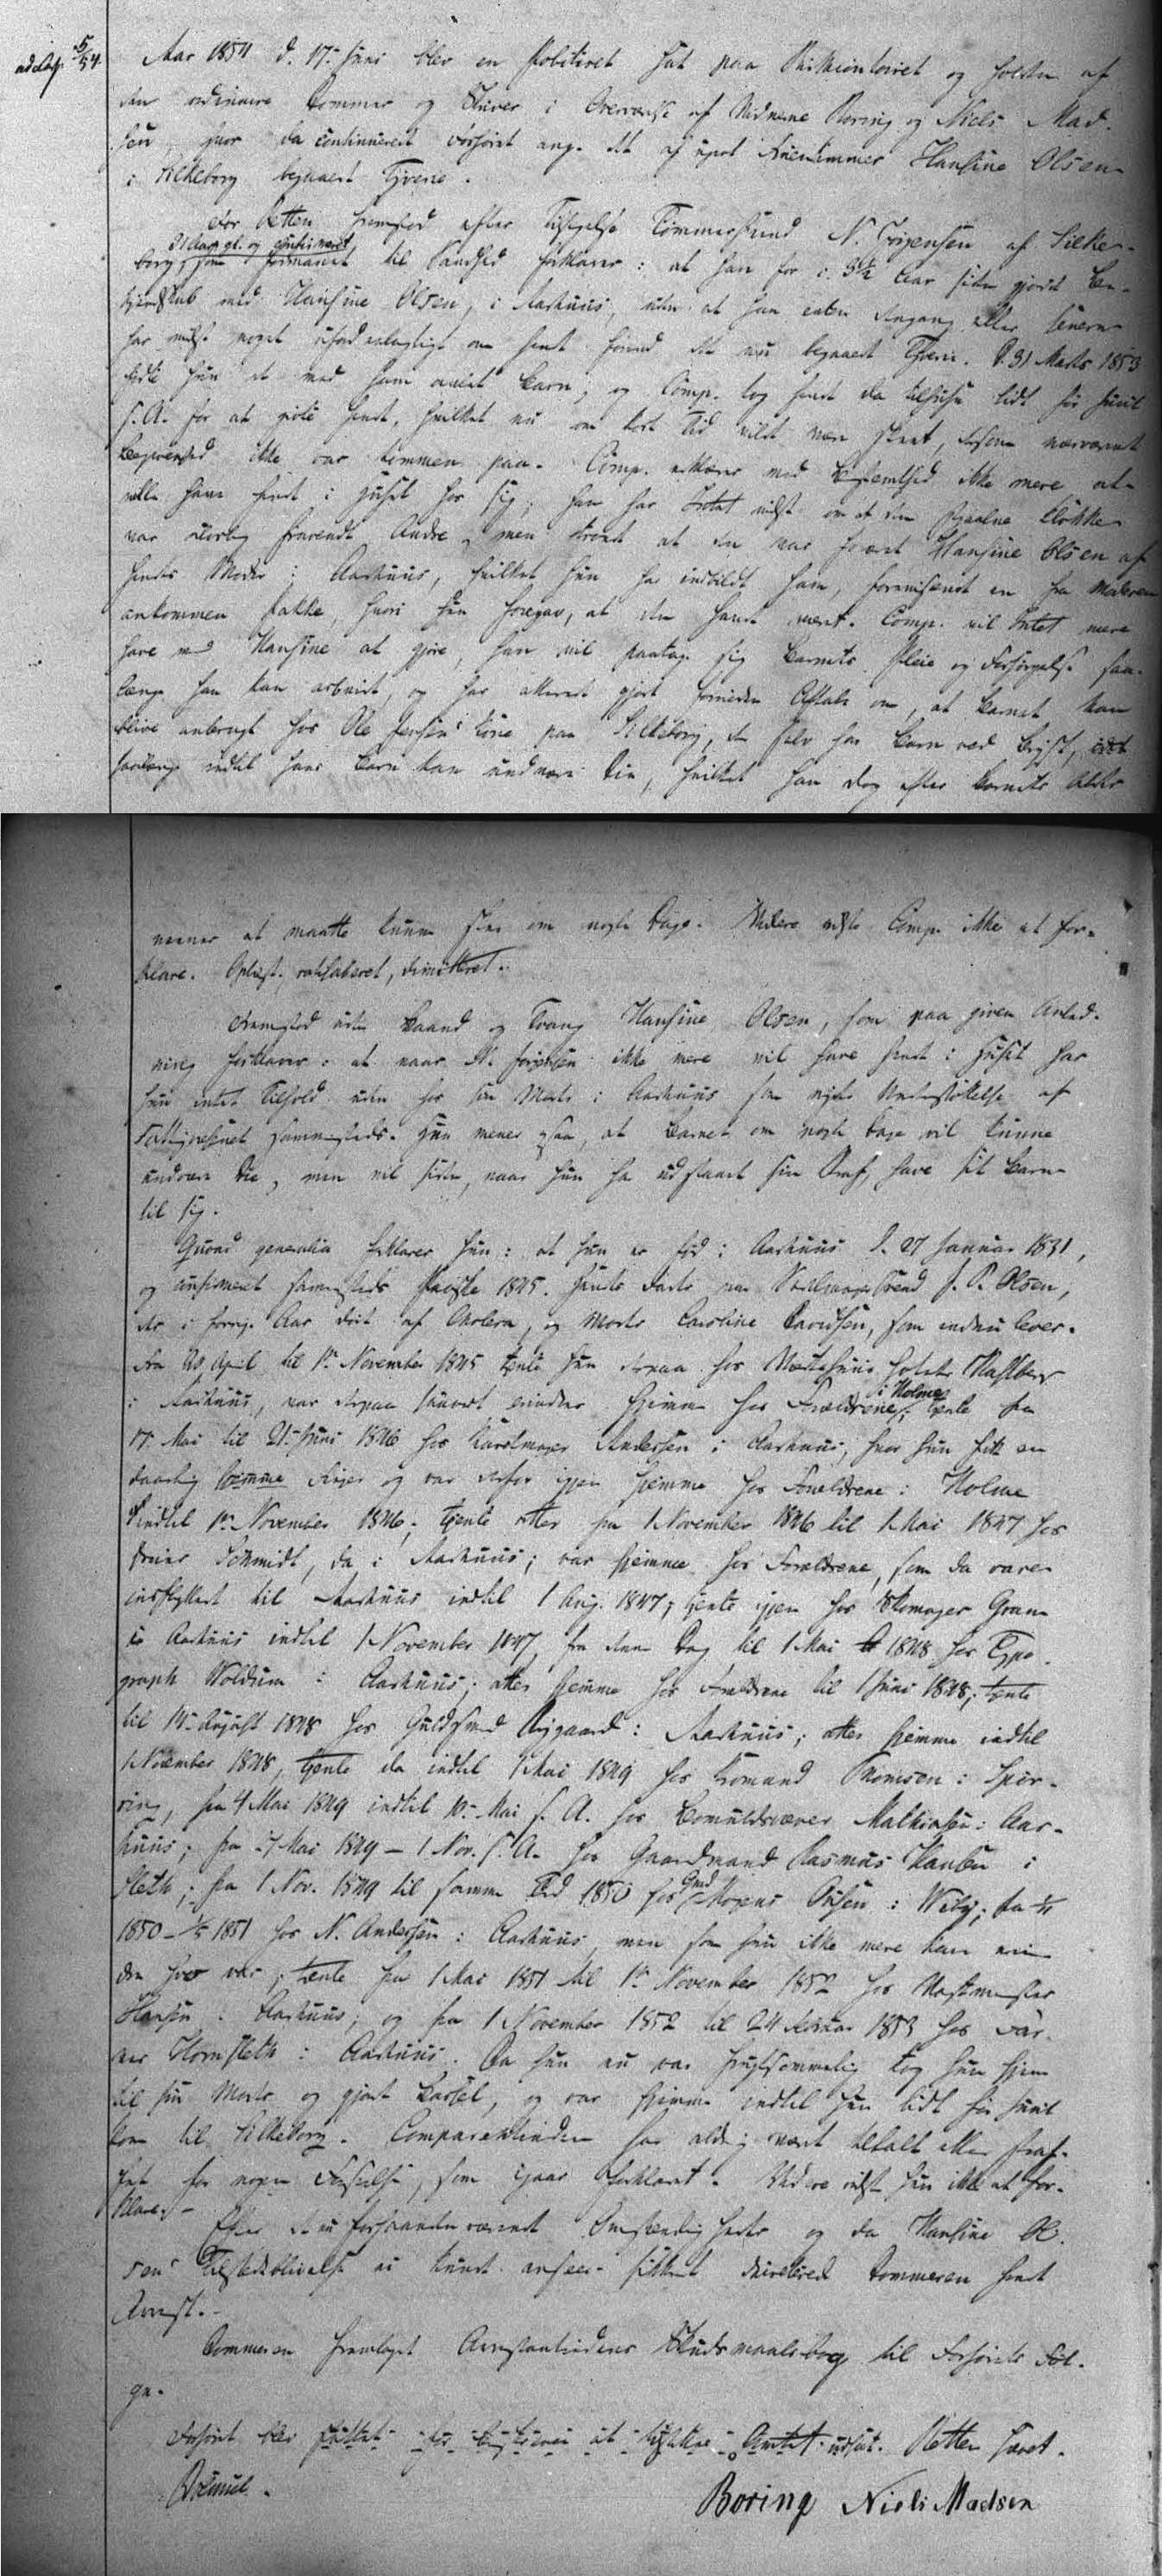 5/54
Aar 1854 d. 17. Juni blev en Politiret sat paa Birkecontoiret og holdtes af
den ordinaire Dommer og Skriver i Overværelse af Vidnerne Boring og Niels Mad-
sen, hvor da continueredes Forhøret ang. det af ugivt Fruentimmer Hansine Olsen
i Silkeborg begaaede Tyverie.
For Retten fremstod efter Tilsigelse Tømmersvend N. Jørgensen af Silke-
31 Aar gl. og confirmeret,
borg, som formanet til Sandhed forklarer: at han for i 3½ Aar siden gjorde Be-
kjendtskab med Hansine Olsen, i Aarhuus, uden at han enten dengang eller senere
har vidst noget ufordeelagtigt om hende førend det nu begaaede Tyverie. D. 31 Marts 1853
fødte hun et med ham avlet Barn, og Comp. tog hende da tilhuse lidt før Juul
s. A. for at gifte hende, hvilket nu om kort Tid vilde være skeet, dersom nærværende
Begivenhed ikke var kommen paa. Comp. erklærer med Bestemthed ikke mere at
ville have hende i Huset hos sig; han har Intet vidst om at den stjaalne Klokke
var ulovlig fravendt Andre, men troede at den var foræret Hansine Olsen af
hendes Moder i Aarhuus, hvilket hun har indbildt ham, foreviisende en fra Moderen
ankommen Pakke, hvori hun foregav, at den havde været. Comp. vil Intet mere
have med Hansine at gjøre, han vil paatage sig Barnets Pleie og Forsørgelse saa-
længe han kan arbeide, og har allerede gjort fornøden Aftale om, at Barnet kan
blive anbragt hos Ole Jensens Kone paa Silkeborg, der selv har Barn ved Bryst,
saalænge indtil hans Barn kan undvære Die, hvilket han dog efter Barnets Alder
mener at maatte kunne skee om nogle Dage. Videre vidste Comp. ikke at for-
klare. Oplæst, ratihaberet, dimitteret.
Fremstod uden Baand og Tvang Hansine Olsen, som paa given Anled-
ning forklarer: at naar N. Jørgensen ikke mere vil have hende i Huset har
hun intet Tilhold uden hos sin Moder i Aarhuus som nyder Understøttelse af
Fattigvæsenet sammesteds. Hun mener ogsaa, at Barnet om nogle Dage vil kunne
undvære Die, men vil siden, naar hun har udstaaet sin Straf, have sit Barn
til sig.
Quoad generalia forklarer hun: at hun er født i Aarhuus d. 27 Januar 1831,
og confirmeret sammesteds Paaske 1845. Hendes Fader var J. P. Olsen,
der i forrige Aar døde af Cholera, og Moder Caroline Davidsen, som endnu lever.
Fra 20 April til 1ste November 1845 tjente hun derpaa hos Værtshuusholder
i Aarhuus, var derpaa hjemme hos Forældrene i Holme, tjente fra
17. Mai til 21. Juni 1846 hos Andersen i Aarhuus, hvor hun fik en
daarlig Finger og var derfor igjen hjemme hos Forældrene i Holme
indtil 1ste November 1846; tjente atter fra 1 November 1846 til 1 Mai 1847 hos
Schmidt, da i Aarhuus; var hjemme hos Forældrene, som da varen
indflyttet til Aarhuus indtil 1 Aug. 1847; tjente igjen hos Skomager Gram
i Aarhuus indtil 1 November 1847, fra denne Dag til 1 Mai 1848 hos Typo-
graph Woldum i Aarhuus; atter hjemme hos Forældrene til 1 Juni 1848; tjente
til 14. August 1848 hos Guldsmed i Aarhuus; atter hjemme indtil
1 November 1848, tjente da indtil 1 Mai 1849 hos Thomsen i Spør-
ring, fra 4 Mai 1849 indtil 10. Mai s. A. hos Bomuldsvæver i Aar-
huus; fra Mai 1849 – 1 Nov. s. A. hos Gaardmand Rasmus i
; fra 1 Nov. 1849 til samme Tid 1850 hos Gmd Mogens i Viby; fra 1/11
1850 – 1/5 1851 hos N. Andersen i Aarhuus, men som hun ikke mere kan
den hvor var; tjente fra 1 Mai 1851 til 1ste November 1852 hos
Hansen i Aarhuus; og fra 1 November 1852 til 24 Februar 1853 hos Far-
ver i Aarhuus. Da hun nu var frugtsommelig tog hun hjem
til sin Moder og gjorde Barsel, og var hjemme indtil hun lidt før Juul
kom til Silkeborg. Comparentinden har aldrig været tiltalt eller straf-
fet for nogen Forseelse, som igaar forklaret. Videre vidste hun ikke at for-
klare.
Efter de nu forhaanden værende Omstændigheder og da Hansine Ol-
sens Tilstedeblivelse ei kunde ansees sikkret decreterede Dommeren hendes
Arrest.
Dommeren fremlagde Arrestantindens Skudsmaalsbog til Forhørets Føl-
ge.
Forhøret blev sluttet for Udskrivten at tilstilles Amtet udsat. Retten hævet.
Boring Niels Madsen